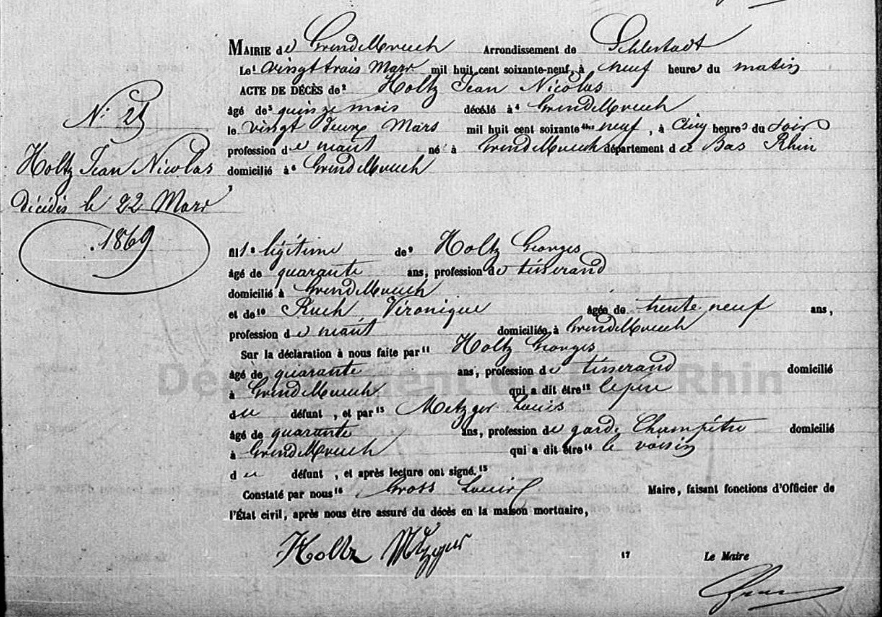 N: 25
Holtz Jean Nicolas
Décédés le 22 Mars
1869
MAIRIE de Arrondissement de Schlestadt
Le¹ vingt trois Mars mil huit cent soixante-neuf, à neuf heures du matin
ACTE DE DÉCÈS de² Holtz Jean Nicolas
âgé de³ quinze mois décédé à⁴
le vingt deux Mars mil huit cent soixante neuf, à cinq heures du soir
profession de néant né à département du Bas Rhin
domicilié à⁶
fils légitime de⁹ Holtz Georges
âgé de quarante ans, profession de tisserand
domicilié à
et de¹⁰ Ruch Véronique âgée de trente neuf ans,
profession de néant domiciliée à
Sur la déclaration à nous faite par¹¹ Holtz Georges
âgé de quarante ans, profession de tisserand domicilié
à qui a dit être¹² le père
du défunt, et par¹³ Metzger Louis
âgé de quarante ans, profession de garde Champêtre domicilié
à qui a dit être¹⁴ le voisin
du défunt, et après lecture ont signé.¹⁵
Constaté par nous¹⁶ Gross Louis Maire, faisant fonctions d'Officier de
l'État civil, après nous être assuré du décès en la maison mortuaire,
Holtz Metzger
17 Le Maire
Gross
Département du Bas-Rhin